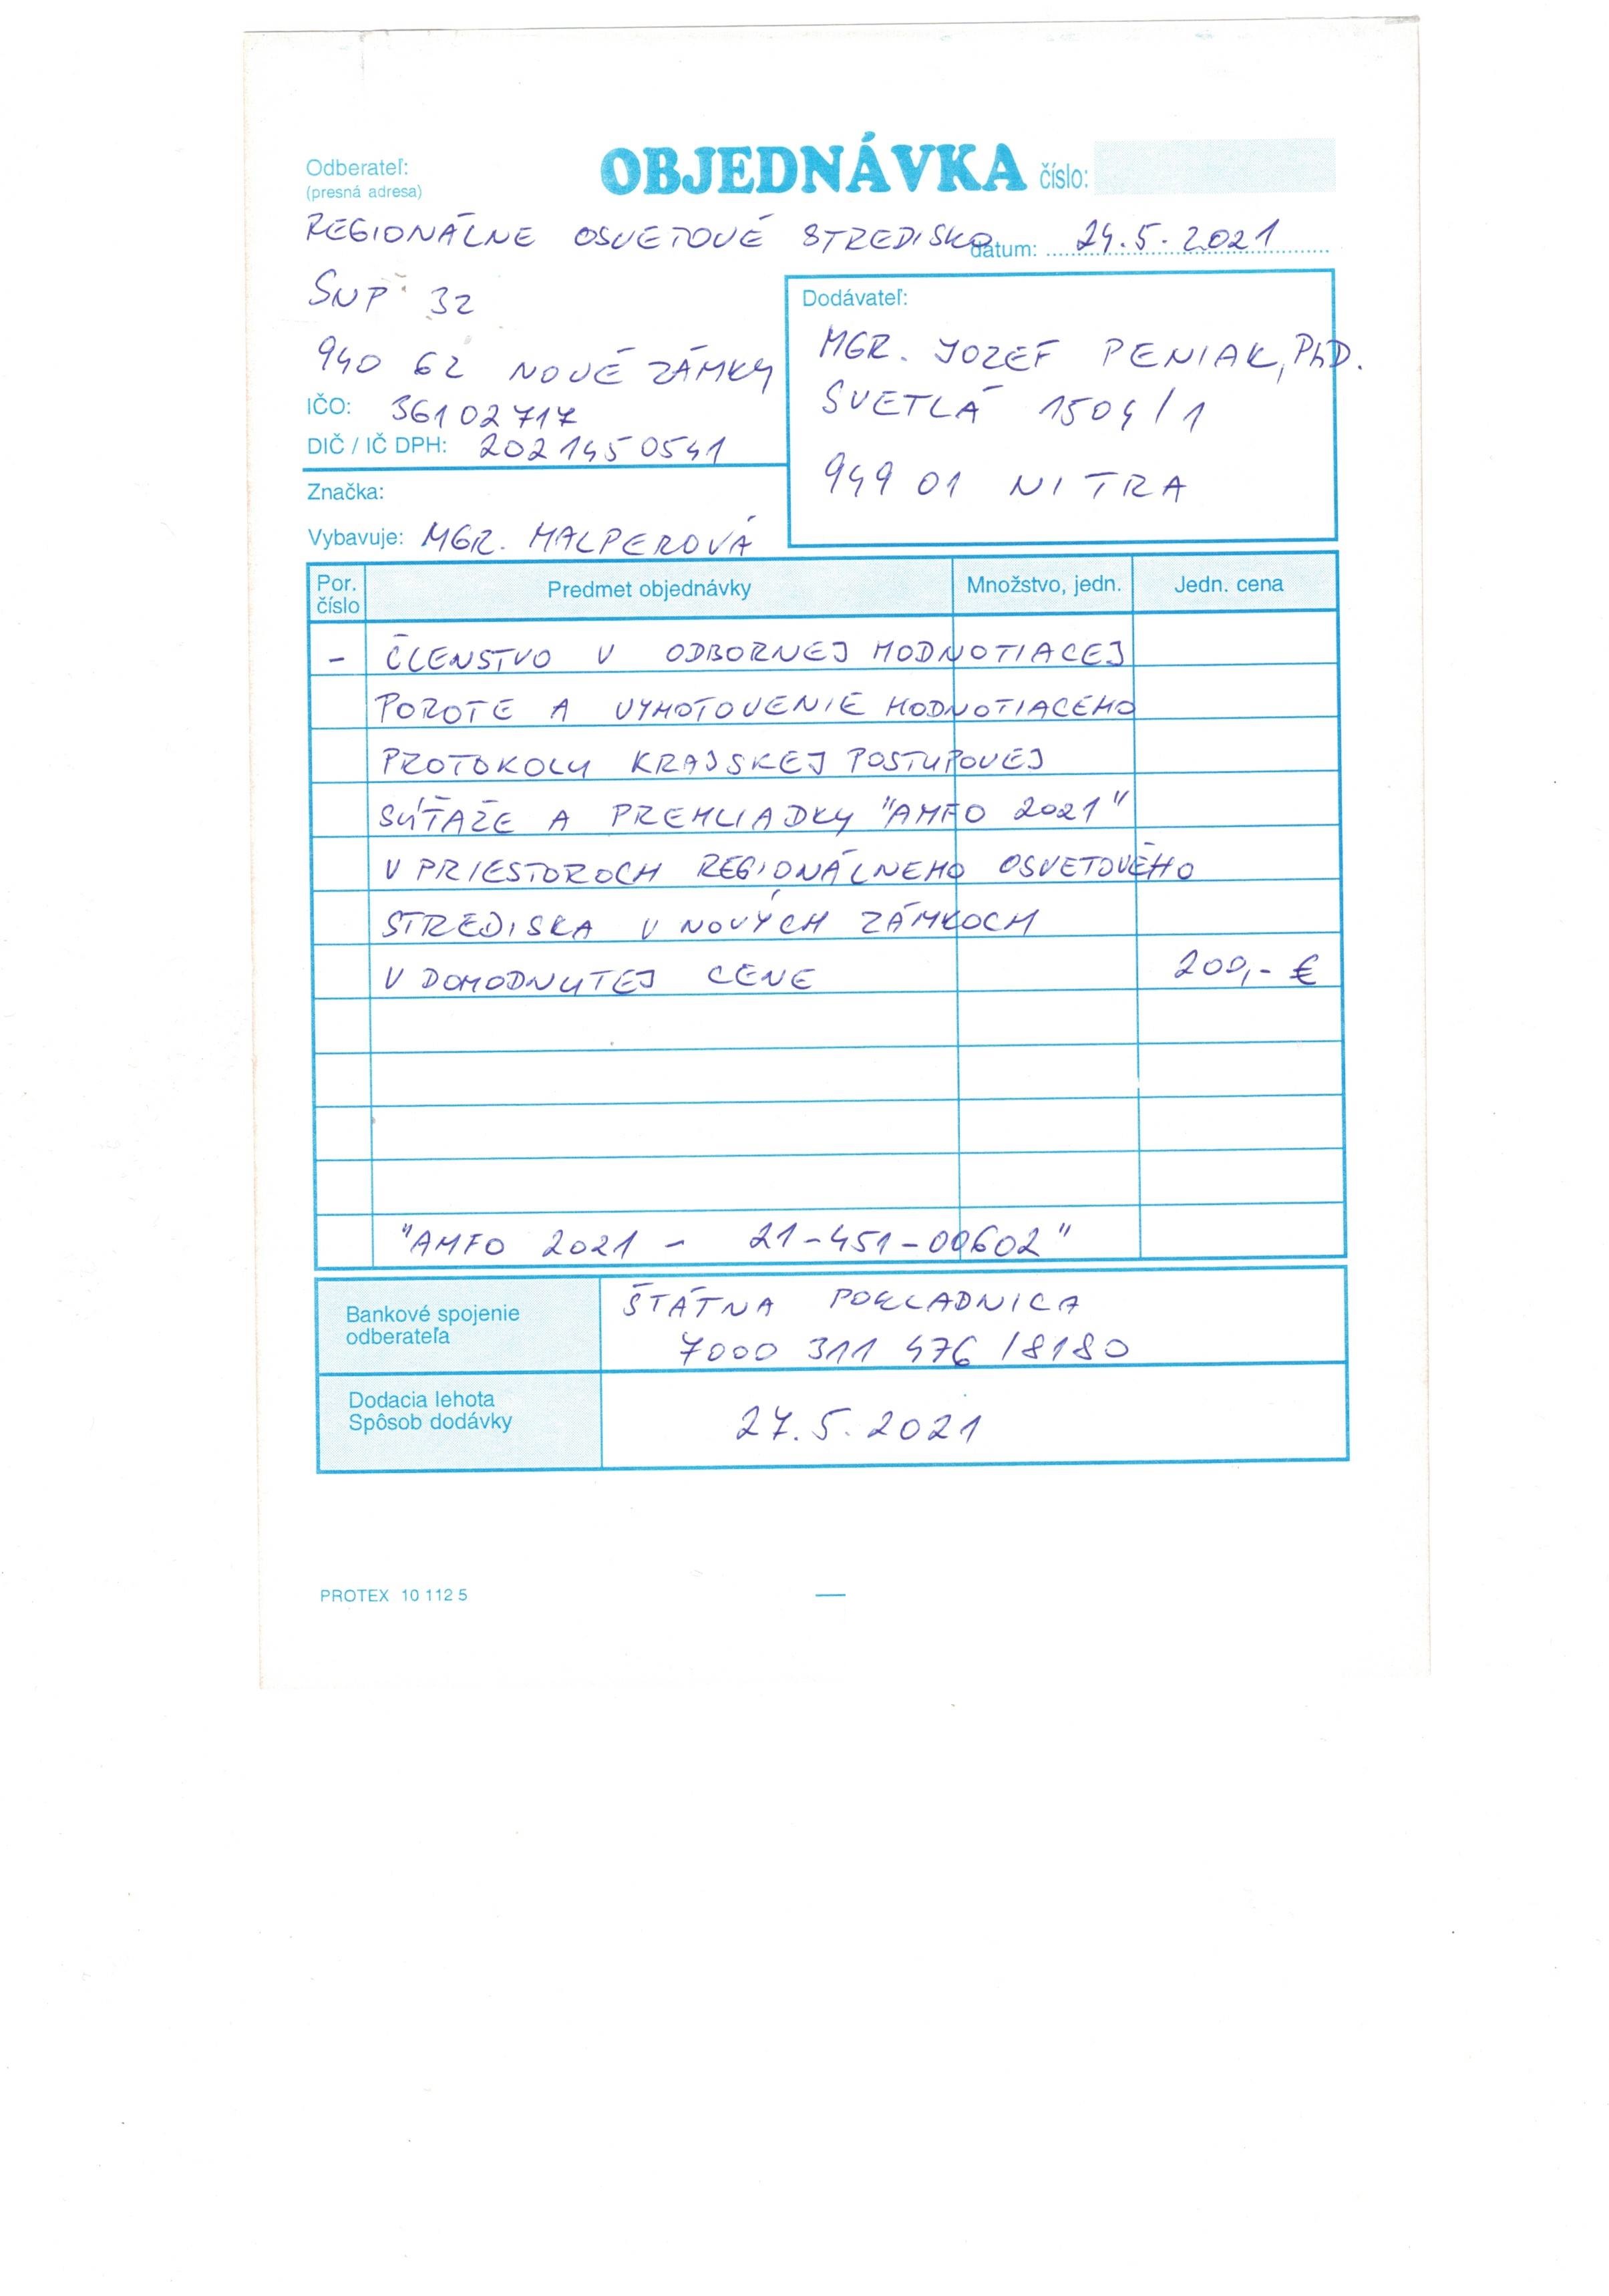 Odberateľ:
(presná adresa)
OBJEDNÁVKA číslo:
REGIONÁLNE OSVETOVÉ STREDISKO
dátum: 24.5.2021
SNP 32
940 62 NOVÉ ZÁMKY
IČO: 36102717
DIČ / IČ DPH: 2021450541
Značka:
Vybavuje: MGR. MALPEROVÁ
Dodávateľ:
MGR. JOZEF PENIAK, PhD.
SVETLÁ 1504/1
949 01 NITRA
Por. číslo Predmet objednávky Množstvo, jedn. Jedn. cena
- ČLENSTVO V ODBORNEJ HODNOTIACEJ
POROTE A VYHOTOVENIE HODNOTIACEHO
PROTOKOLU KRAJSKEJ POSTUPOVEJ
SÚŤAŽE A PREHLIADKY "AMFO 2021"
V PRIESTOROCH REGIONÁLNEHO OSVETOVÉHO
STREDISKA V NOVÝCH ZÁMKOCH
V DOHODNUTEJ CENE 200,- €
"AMFO 2021 - 21-451-00602"
Bankové spojenie
odberateľa
ŠTÁTNA POKLADNICA
7000 311 476 /8180
Dodacia lehota
Spôsob dodávky
27.5.2021
PROTEX 10 112 5